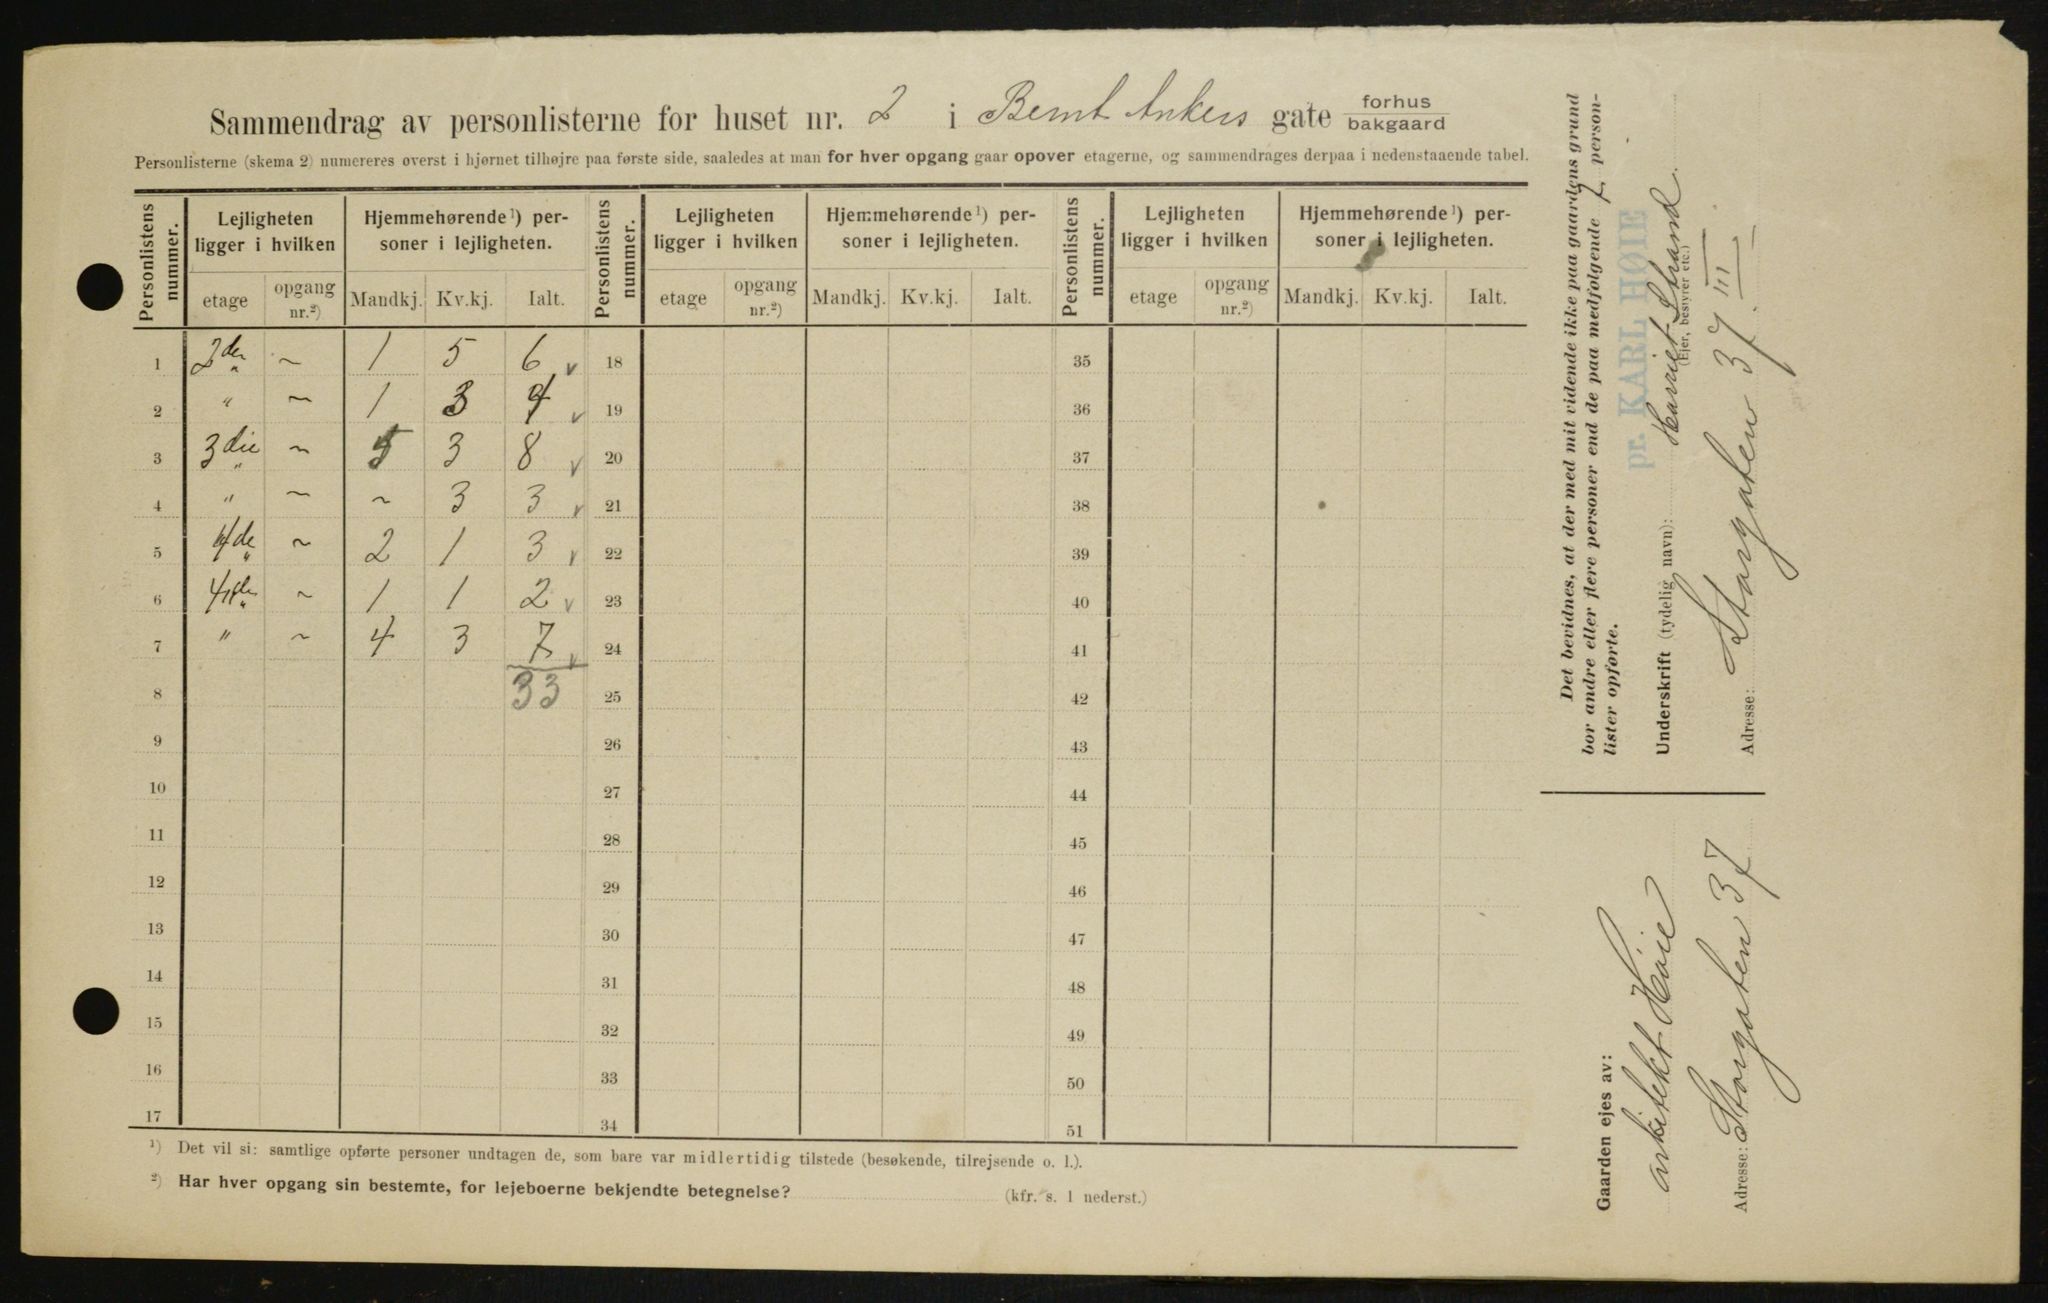 Sammendrag av personlisterne for huset nr. 2 i Bernt Ankers gate forhus bakgaard
Personlisterne (skema 2) numereres øverst i hjørnet tilhøjre paa første side, saaledes at man for hver opgang gaar opover etagerne, og sammendrages derpaa i nedenstaaende tabel.
Personlistens nummer. Lejligheten ligger i hvilken Hjemmehørende ¹) personer i lejligheten. Personlistens nummer. Lejligheten ligger i hvilken Hjemmehørende ¹) personer i lejligheten. Personlistens nummer. Lejligheten ligger i hvilken Hjemmehørende ¹) personer i lejligheten.
etage opgang nr.²) Mandkj. Kv.kj. Ialt. etage opgang nr.²) Mandkj. Kv.kj. Ialt. etage opgang nr.²) Mandkj. Kv.kj. Ialt.
1 2den " ~ 1 5 6 v 18 35
2 " ~ 1 3 4 v 19 36
3 3die " ~ 5 3 8 v 20 37
4 " ~ ~ 3 3 v 21 38
5 4de " ~ 2 1 3 v 22 39
6 4de " ~ 1 1 2 v 23 40
7 " ~ 4 3 7 v 24 41
8 33 25 42
9 26 43
10 27 44
11 28 45
12 29 46
13 30 47
14 31 48
15 32 49
16 33 50
17 34 51
¹) Det vil si: samtlige opførte personer undtagen de, som bare var midlertidig tilstede (besøkende, tilrejsende o. l.).
²) Har hver opgang sin bestemte, for lejeboerne bekjendte betegnelse? (kfr. s. 1 nederst.)
Det bevidnes, at der med mit vidende ikke paa gaardens grund
bor andre eller flere personer end de paa medfølgende 7 person-
lister opførte.
pr. KARL HØIE
Underskrift (tydelig navn): Harriet Strand.
(Ejer, bestyrer etc.)
Adresse: Storgaten 37. III
Gaarden ejes av:
arkitekt Høie
Adresse: Storgaten 37